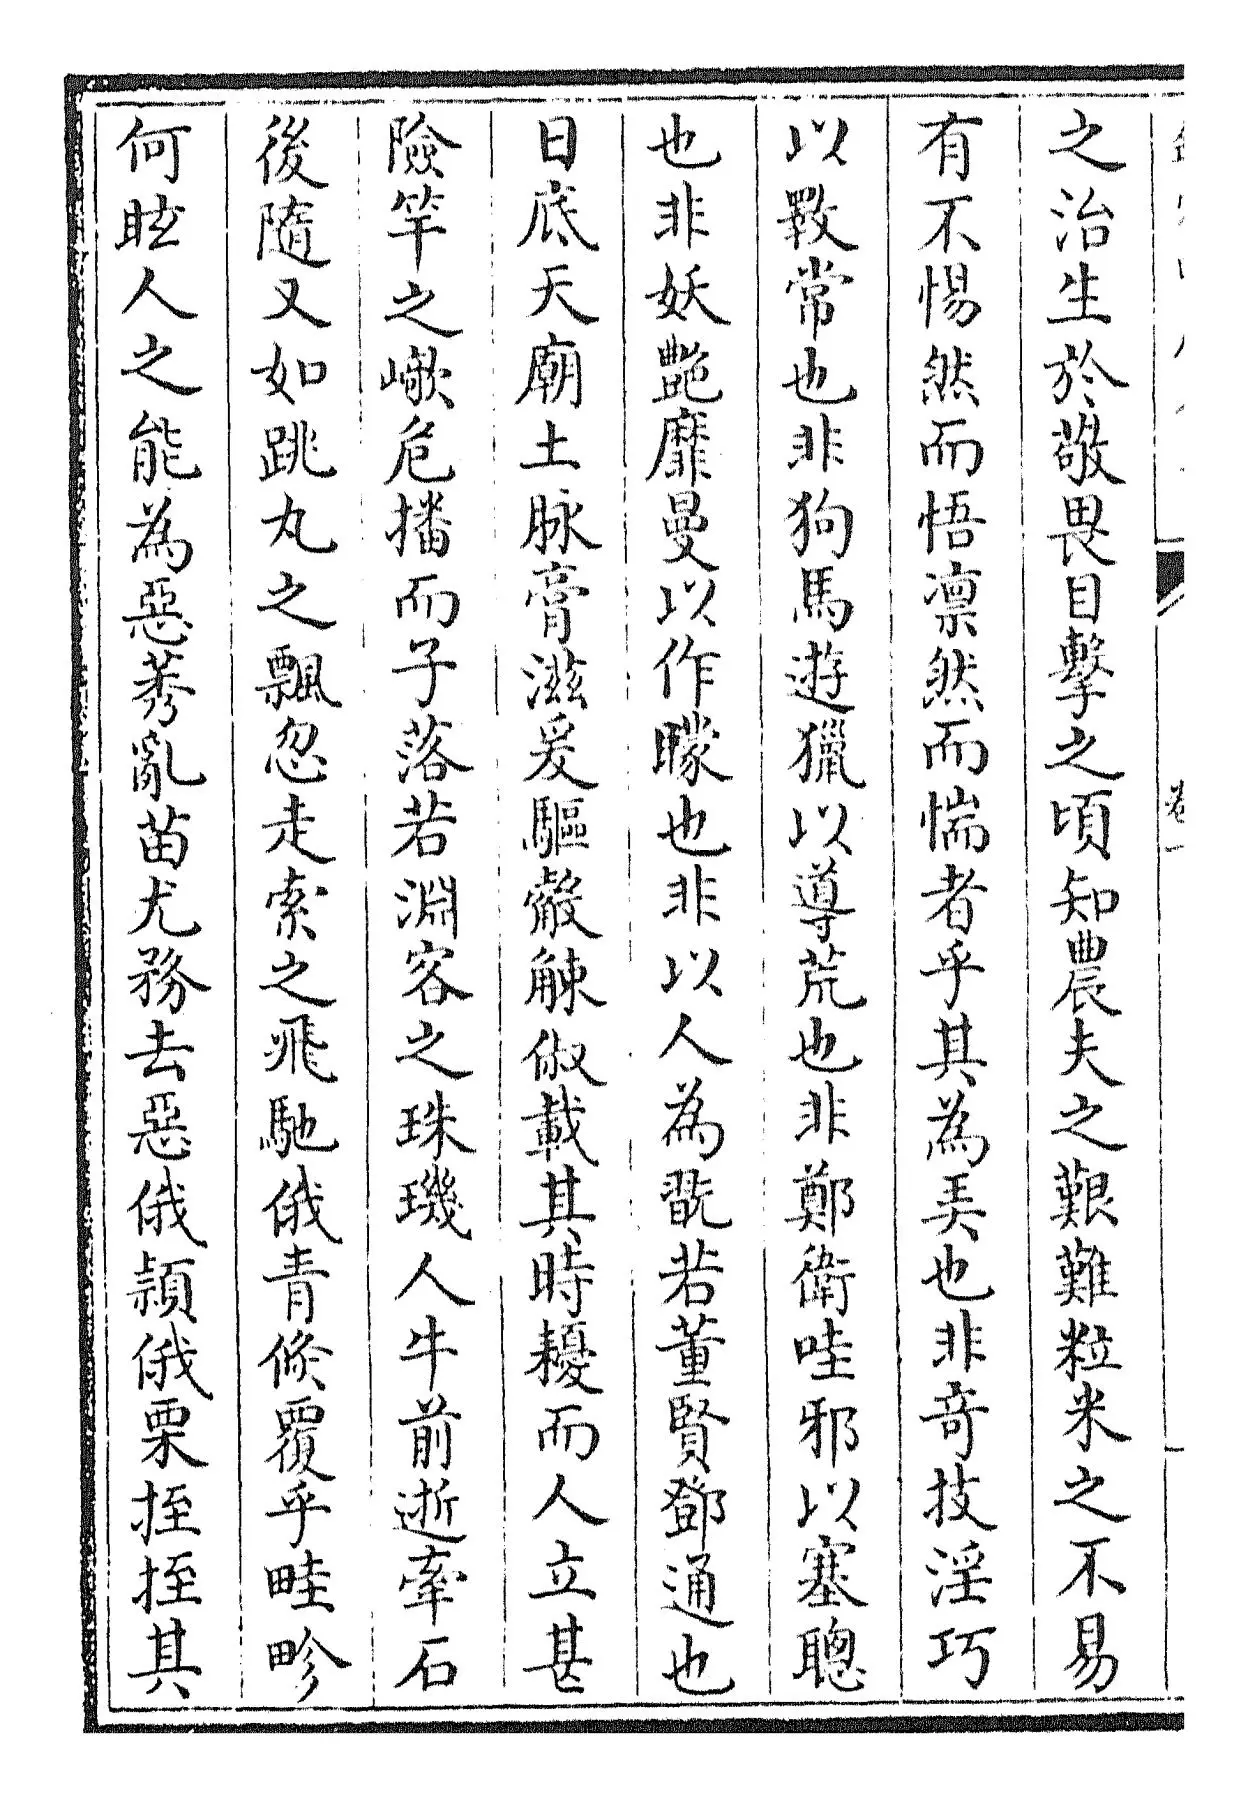 之治生於敬畏目擊之頃知農夫之艱難粒米之不易
有不惕然而悟凛然而惴者乎其為弄也非竒技淫巧
以斁常也非狗馬遊獵以導荒也非鄭衛哇邪以塞聰
也非妖艷靡曼以作矇也非以人為翫若董賢鄧通也
日底天廟土脉膏滋爰驅觳觫俶載其時耰而人立甚
險竿之危播而子落若淵客之珠璣人牛前逝牽石
後隨又如跳丸之飄忽走索之飛馳俄青倐覆乎畦畛
何眩人之能為惡莠亂苗尤務去惡俄頴俄栗挃挃其